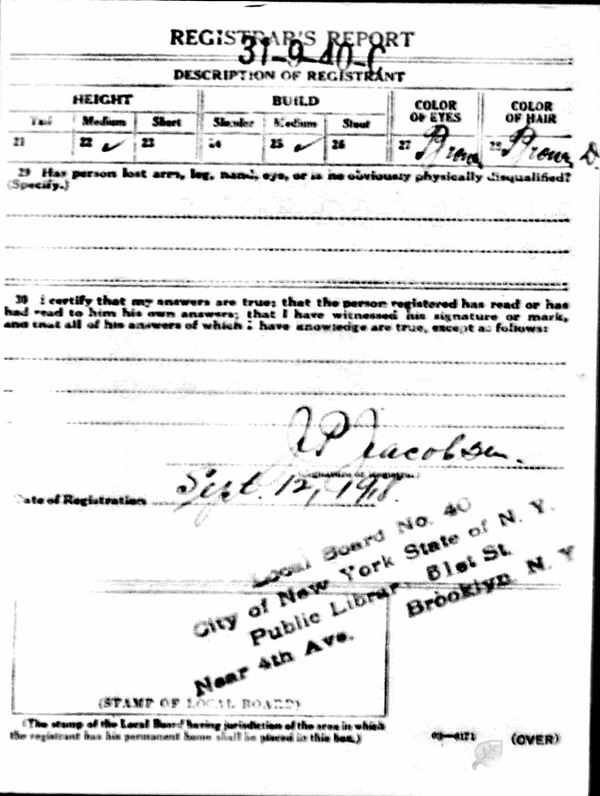 REGISTRAR'S REPORT
31-9-40-C
DESCRIPTION OF REGISTRANT
HEIGHT BUILD COLOR OF EYES COLOR OF HAIR
Tall Medium Short Slender Medium Stout
21 22 ✓ 23 24 25 ✓ 26 27 Brown 28 Brown D.
29 Has person lost arm, leg, hand, eye, or is he obviously physically disqualified?
(Specify.)
30 I certify that my answers are true; that the person registered has read or has
had read to him his own answers; that I have witnessed his signature or mark,
and that all of his answers of which I have knowledge are true, except as follows:
J P Jacobsen.
(Signature of Registrar)
Date of Registration Sept. 12, 1918.
Local Board No. 40
City of New York State of N. Y.
Public Library 51st St.
Near 4th Ave. Brooklyn N. Y
(STAMP OF LOCAL BOARD)
(The stamp of the Local Board having jurisdiction of the area in which
the registrant has his permanent home shall be placed in this box.)
03—6171 (OVER)